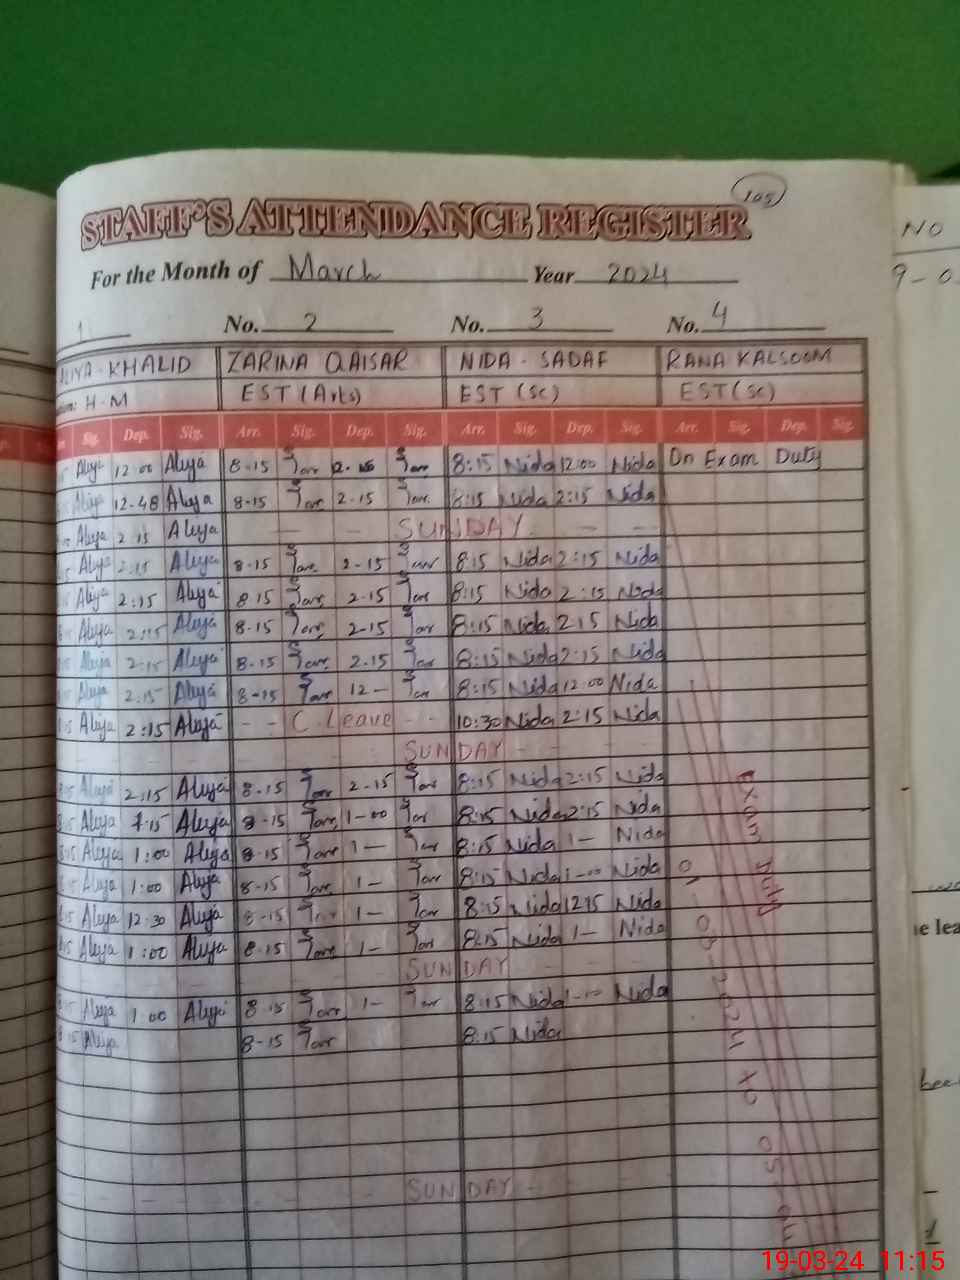 105
STAFF'S ATTENDANCE REGISTER
For the Month of March Year 2024
1 No. 2 No. 3 No. 4
KHALID ZARINA QAISAR NIDA - SADAF RANA KALSOOM
H-M EST (Arts) EST (Sc) EST (Sc)
Sig. Dep. Sig. Arr. Sig. Dep. Sig. Arr. Sig. Dep. Sig. Arr. Sig. Dep. Sig.
12:00 Aliya 8-15 8:15 Nida 12:00 Nida On Exam Duty
Aliya 12-48 Aliya 8-15 2-15 8:15 Nida 2:15 Nida
Aliya 2:15 Aliya SUNDAY
Aliya 2:15 Aliya 8-15 2-15 8:15 Nida 2:15 Nida
Aliya 2:15 Aliya 8-15 2-15 8:15 Nida 2:15 Nida
Aliya 2:15 Aliya 8-15 2-15 8:15 Nida 2:15 Nida
Aliya 2:15 Aliya 8-15 2.15 8:15 Nida 2:15 Nida
Aliya 2:15 Aliya 8-15 12- 8:15 Nida 12:00 Nida
Aliya 2:15 Aliya - - C. Leave - - 10:30 Nida 2:15 Nida
SUNDAY
Aliya 2:15 Aliya 8-15 2-15 8:15 Nida 2:15 Nida
Aliya Aliya 8-15 1-00 8:15 Nida 2:15 Nida
Aliya 1:00 Aliya 8-15 1- 8:15 Nida 1- Nida
Aliya 1:00 Aliya 8-15 1- 8:15 Nida 1-00 Nida
Aliya 12:30 Aliya 8-15 1- 8:15 Nida 12:15 Nida
Aliya 1:00 Aliya 8-15 1- 8:15 Nida 1- Nida
SUNDAY
Aliya 1:00 Aliya 8-15 1- 8:15 Nida 1-00 Nida
8:15 Aliya 8-15 8:15 Nida
SUNDAY
Exam Duty
01-03-2024 to
05-04
NO
9-0
e lea
19-03-24 11:15